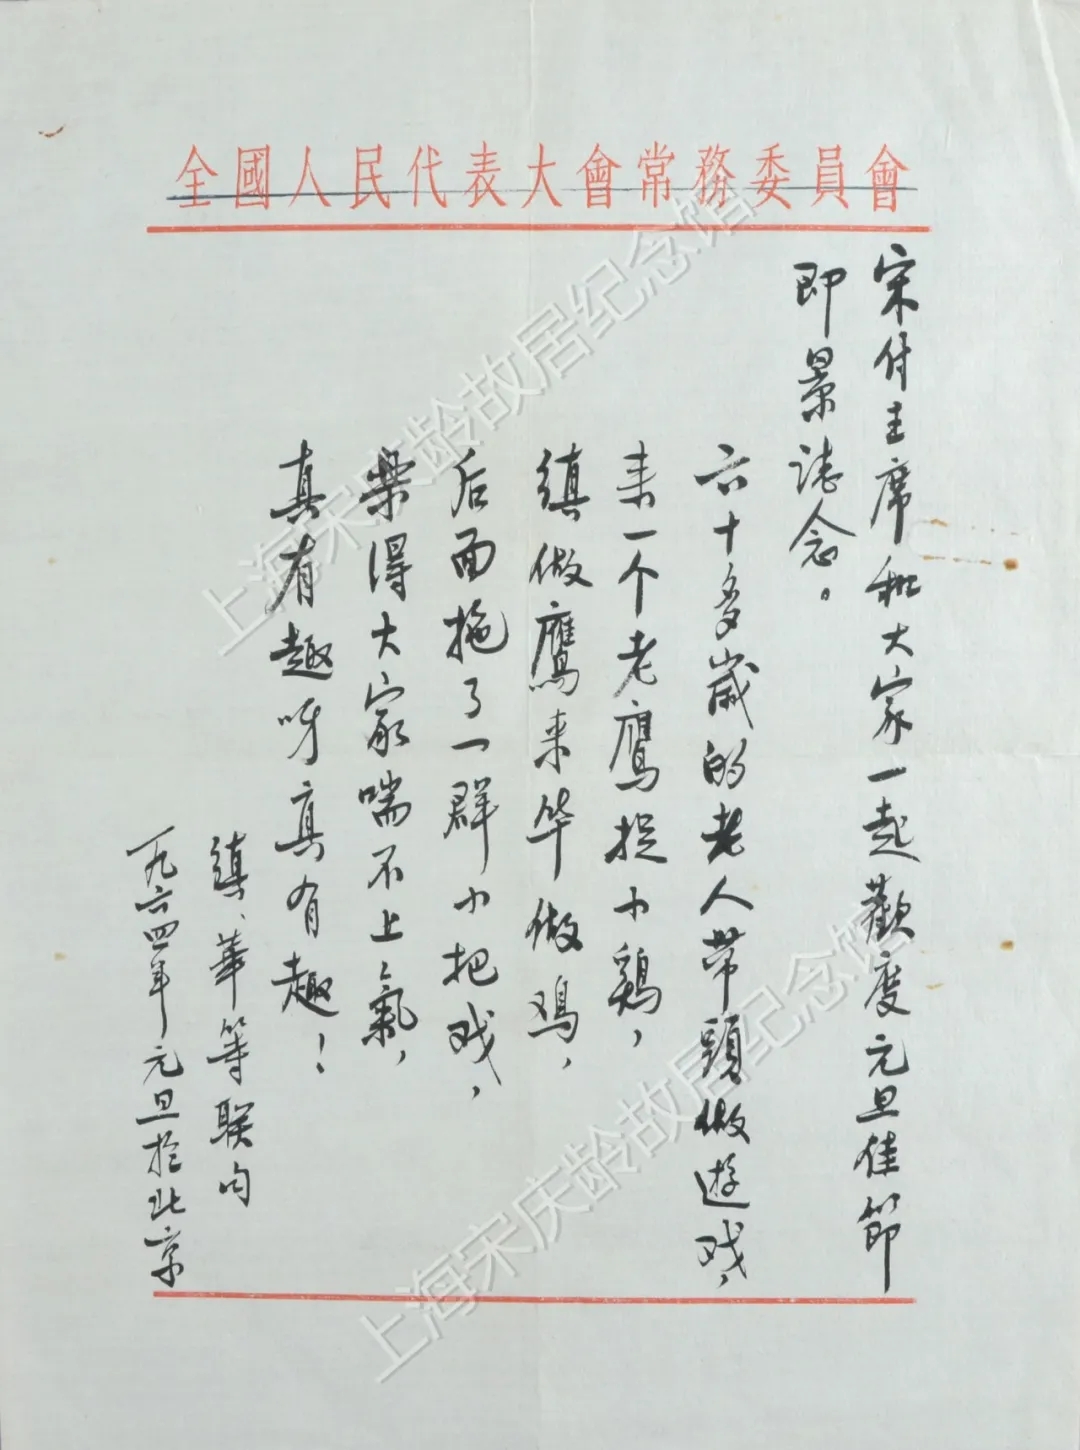 全國人民代表大會常務委員會
宋付主席和大家一起歡度元旦佳節
即景誌念。
六十多歲的老人带頭做遊戏，
来一个老鹰捉小鷄，
縝做鷹来华做鸡，
后面拖了一群小把戏，
樂得大家喘不上氣，
真有趣呀真有趣！
縝、華等联句
一九六四年元旦於北京
上海宋庆龄故居纪念馆
上海宋庆龄故居纪念馆